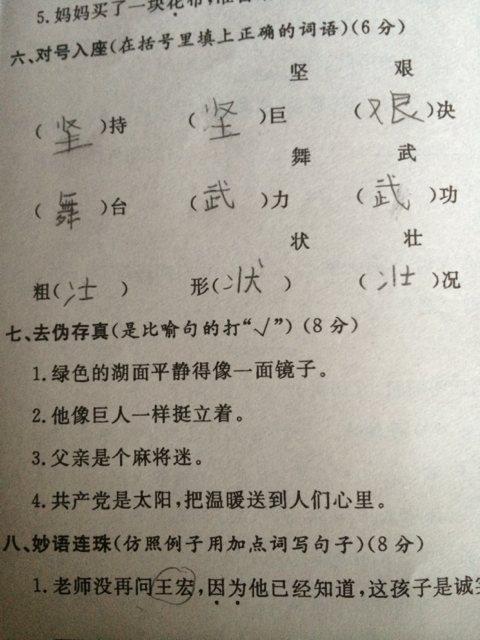 5.妈妈买了一块花布,
六、对号入座(在括号里填上正确的词语)(6分)
坚 艰
(坚)持 (坚)巨 (艰)决
舞 武
(舞)台 (武)力 (武)功
状 壮
粗(壮) 形(状) (壮)况
七、去伪存真(是比喻句的打“√”)(8分)
1.绿色的湖面平静得像一面镜子。
2.他像巨人一样挺立着。
3.父亲是个麻将迷。
4.共产党是太阳,把温暖送到人们心里。
八、妙语连珠(仿照例子用加点词写句子)(8分)
1.老师没再问王宏,因为他已经知道,这孩子是诚